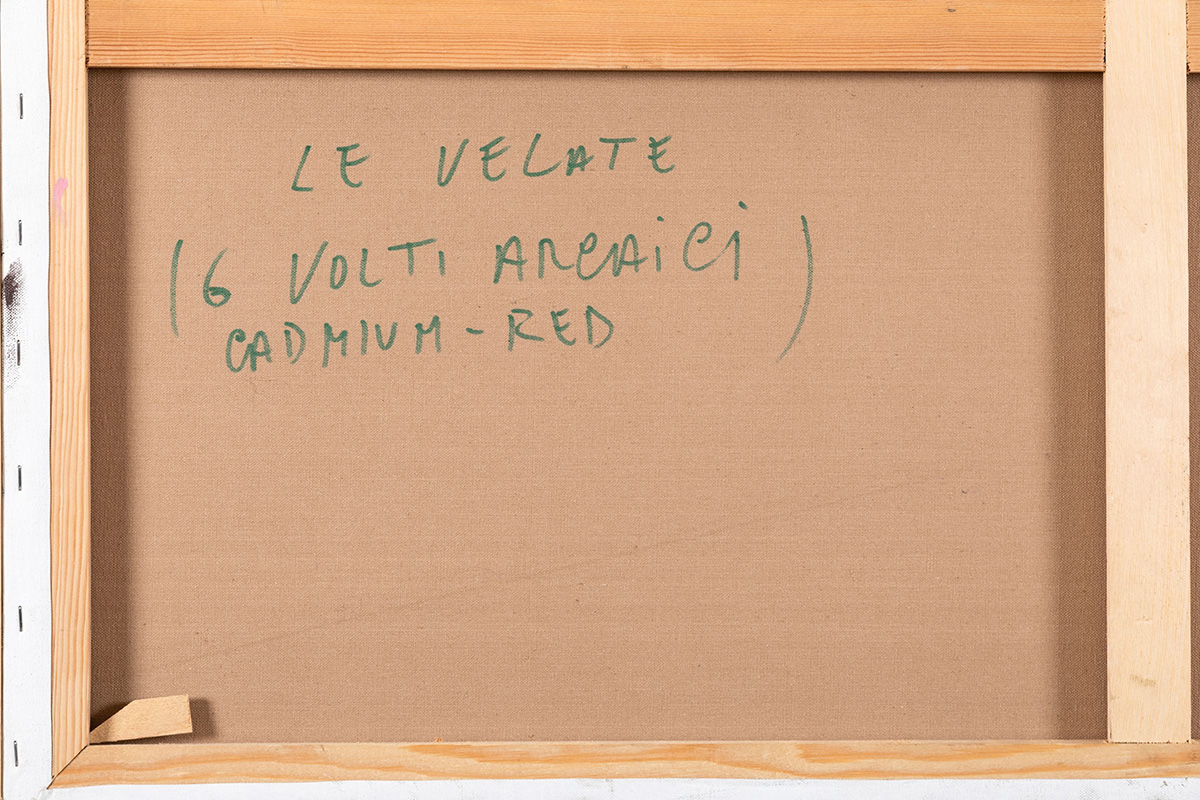 LE VELATE
(6 VOLTI ARCAiCi)
CADMIUM-RED